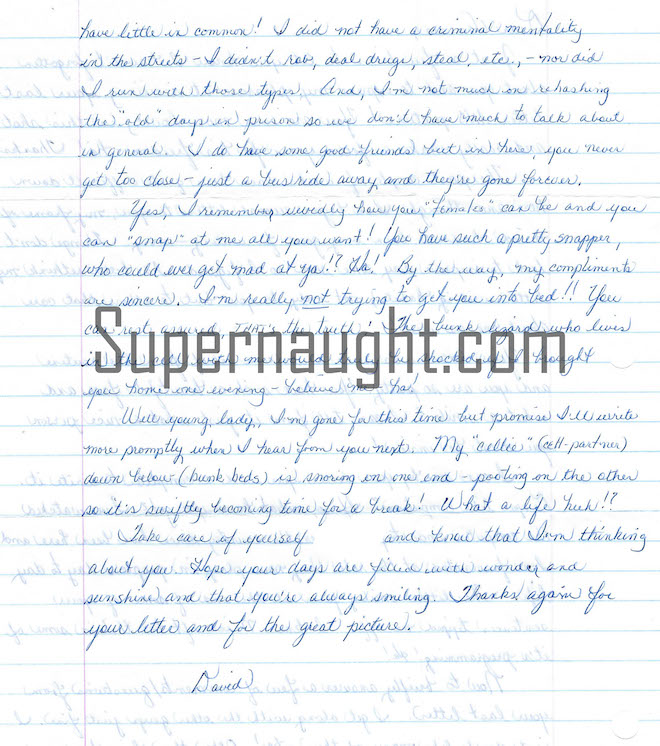 have little in common! I did not have a criminal mentality
in the streets - I didn't rob, deal drugs, steal, etc., - nor did
I run with those types. And, I'm not much on rehashing
the "old" days in prison so we don't have much to talk about
in general. I do have some good friends but in here, you never
get too close - just a bus ride away and they're gone forever.
Yes, I remember vividly how you "females" can be and you
can "snap" at me all you want! You have such a pretty snapper,
who could ever get mad at ya!? Ha! By the way, my compliments
are sincere. I'm really not trying to get you into bed!! You
can rest assured, THAT's the truth! The bunk lizard who lives
in the cell with me would truly be shocked if I brought
Supernaught.com
you home one evening - believe me - ha!
Well young lady, I'm gone for this time but promise I'll write
more promptly when I hear from you next. My "cellie" (cell-partner)
down below (bunk beds) is snoring on one end - pooting on the other
so it's swiftly becoming time for a break! What a life huh!?
Take care of yourself and know that I'm thinking
about you. Hope your days are filled with wonder and
sunshine and that you're always smiling. Thanks again for
your letter and for the great picture.
David